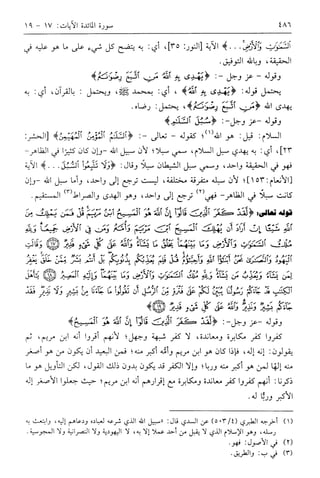 ٤٨٦
سورة المائدة الآيات: ١٧ - ١٩
السَّمَاوَاتِ وَالْأَرْضِ...﴾ الآية [النور: ٣٥]، أي: به يتضح كل شيء على ما هو عليه في
الحقيقة، وبالله التوفيق.
وقوله - عز وجل -: ﴿يَهْدِي بِهِ اللَّهُ مَنِ اتَّبَعَ رِضْوَانَهُ﴾
يحتمل قوله: ﴿يَهْدِي بِهِ اللَّهُ﴾ ، أي: بمحمد ﷺ، ويحتمل : بالقرآن، أي: به
يهدي الله ﴿مَنِ اتَّبَعَ رِضْوَانَهُ﴾، يحتمل: رضاه.
وقوله -عز وجل-: ﴿سُبُلَ السَّلَامِ﴾
السلام: قيل: هو الله(١)؛ كقوله - تعالى -: ﴿السَّلَامُ الْمُؤْمِنُ الْمُهَيْمِنُ﴾ [الحشر:
٢٣]، أي: به يهدي سبل السلام، سمي سبلا؛ لأن سبيل الله -وإن كان كثيرًا في الظاهر-
فهو في الحقيقة واحد، وسمي سبل الشيطان سبلًا وقال: ﴿وَلَا تَتَّبِعُوا السُّبُلَ...﴾ الآية
[الأنعام: ١٥٣]؛ لأن سبله متفرقة مختلفة، ليست ترجع إلى واحد، وأما سبل الله -وإن
كانت سبلًا في الظاهر- فهي(٢) ترجع إلى واحد، وهو الهدى والصراط(٣) المستقيم.
قوله تعالى: ﴿لَّقَدْ كَفَرَ الَّذِينَ قَالُوا إِنَّ اللَّهَ هُوَ الْمَسِيحُ ابْنُ مَرْيَمَ قُلْ فَمَن يَمْلِكُ مِنَ
اللَّهِ شَيْئًا إِنْ أَرَادَ أَن يُهْلِكَ الْمَسِيحَ ابْنَ مَرْيَمَ وَأُمَّهُ وَمَن فِي الْأَرْضِ جَمِيعًا وَلِلَّهِ مُلْكُ
السَّمَاوَاتِ وَالْأَرْضِ وَمَا بَيْنَهُمَا يَخْلُقُ مَا يَشَاءُ وَاللَّهُ عَلَى كُلِّ شَيْءٍ قَدِيرٌ ۝ وَقَالَتِ
الْيَهُودُ وَالنَّصَارَى نَحْنُ أَبْنَاءُ اللَّهِ وَأَحِبَّاؤُهُ قُلْ فَلِمَ يُعَذِّبُكُم بِذُنُوبِكُم بَلْ أَنتُم بَشَرٌ مِّمَّنْ خَلَقَ يَغْفِرُ
لِمَن يَشَاءُ وَيُعَذِّبُ مَن يَشَاءُ وَلِلَّهِ مُلْكُ السَّمَاوَاتِ وَالْأَرْضِ وَمَا بَيْنَهُمَا وَإِلَيْهِ الْمَصِيرُ ۝ يَا أَهْلَ
الْكِتَابِ قَدْ جَاءَكُمْ رَسُولُنَا يُبَيِّنُ لَكُمْ عَلَى فَتْرَةٍ مِّنَ الرُّسُلِ أَن تَقُولُوا مَا جَاءَنَا مِن بَشِيرٍ وَلَا نَذِيرٍ فَقَدْ
جَاءَكُم بَشِيرٌ وَنَذِيرٌ وَاللَّهُ عَلَى كُلِّ شَيْءٍ قَدِيرٌ ۝﴾
وقوله -عز وجل-: ﴿لَّقَدْ كَفَرَ الَّذِينَ قَالُوا إِنَّ اللَّهَ هُوَ الْمَسِيحُ﴾
كفروا كفر مكابرة ومعاندة، لا كفر شبهة وجهل؛ لأنهم أقروا أنه ابن مريم، ثم
يقولون: إنه إله، فإذا كان هو ابن مريم وأمه أكبر منه؛ فمن البعيد أن يكون من هو أصغر
منه إلها لمن هو أكبر منه وربا؛ وإلا الكفر قد يكون بدون ذلك القول، لكن التأويل هو ما
ذكرنا: أنهم كفروا كفر معاندة ومكابرة مع إقرارهم أنه ابن مريم؛ حيث جعلوا الأصغر إله
الأكبر وربًّا له.
(١) أخرجه الطبري (٥٠٣/٤) عن السدي قال: «سبيل الله الذي شرعه لعباده ودعاهم إليه، وابتعث به
رسله، وهو الإسلام الذي لا يقبل من أحد عملا إلا به، لا اليهودية ولا النصرانية ولا المجوسية.
(٢) في الأصول: فهو.
(٣) في ب: والطريق.